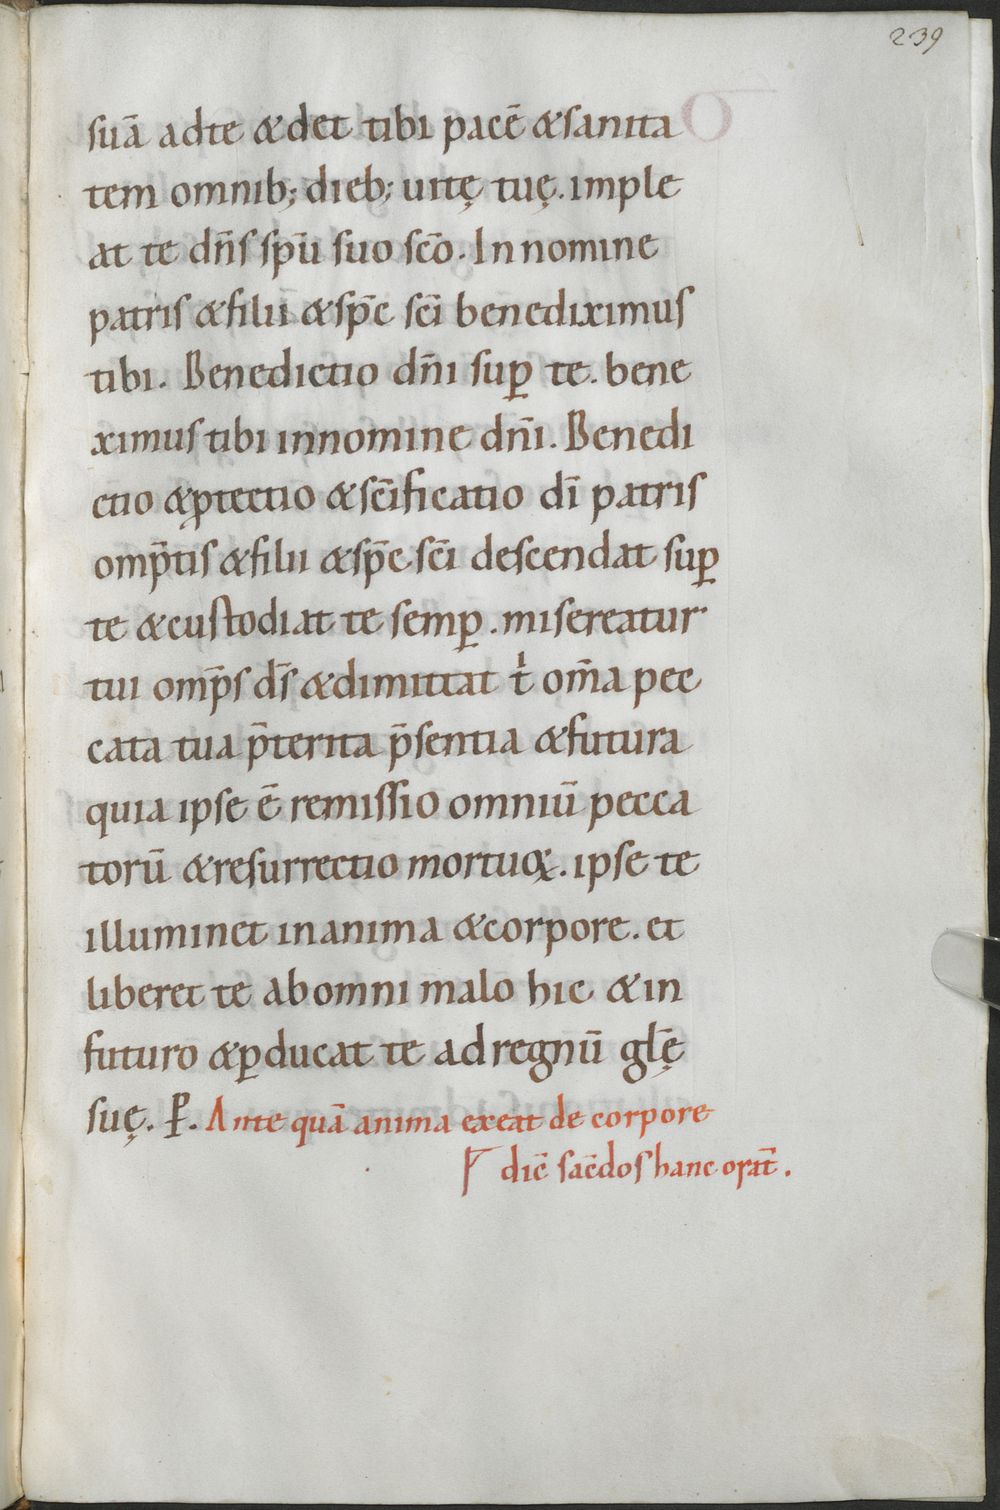 239
suā adte &det tibi pacē &sanita
tem omnib; dieb; uitę tuę. imple
at te dn̄s sp̄u suo sc̄o. In nomine
patris &filii &sp̄c sc̄i benediximus
tibi. Benedictio dn̄i suꝑ te. bene
ximus tibi innomine dn̄i. Benedi
ctio &ꝓtectio &sc̄ificatio dī patris
omp̄tis &filii &sp̄c sc̄i descendat suꝑ
te &custodiat te semꝑ. misereatur
tui omp̄s ds̄ &dimittat tⁱ om̄a pec
cata tua p̄terita p̄sentia &futura
quia ipse ē remissio omniū pecca
torū &resurrectio mortuoꝝ. ipse te
illuminet inanima &corpore. et
liberet te abomni malo hic &in
futuro &ꝑducat te adregnū gl̄ę
suę. P̄. Ante quā anima exeat de corpore
dic̄ sac̄dos hanc orat̄.